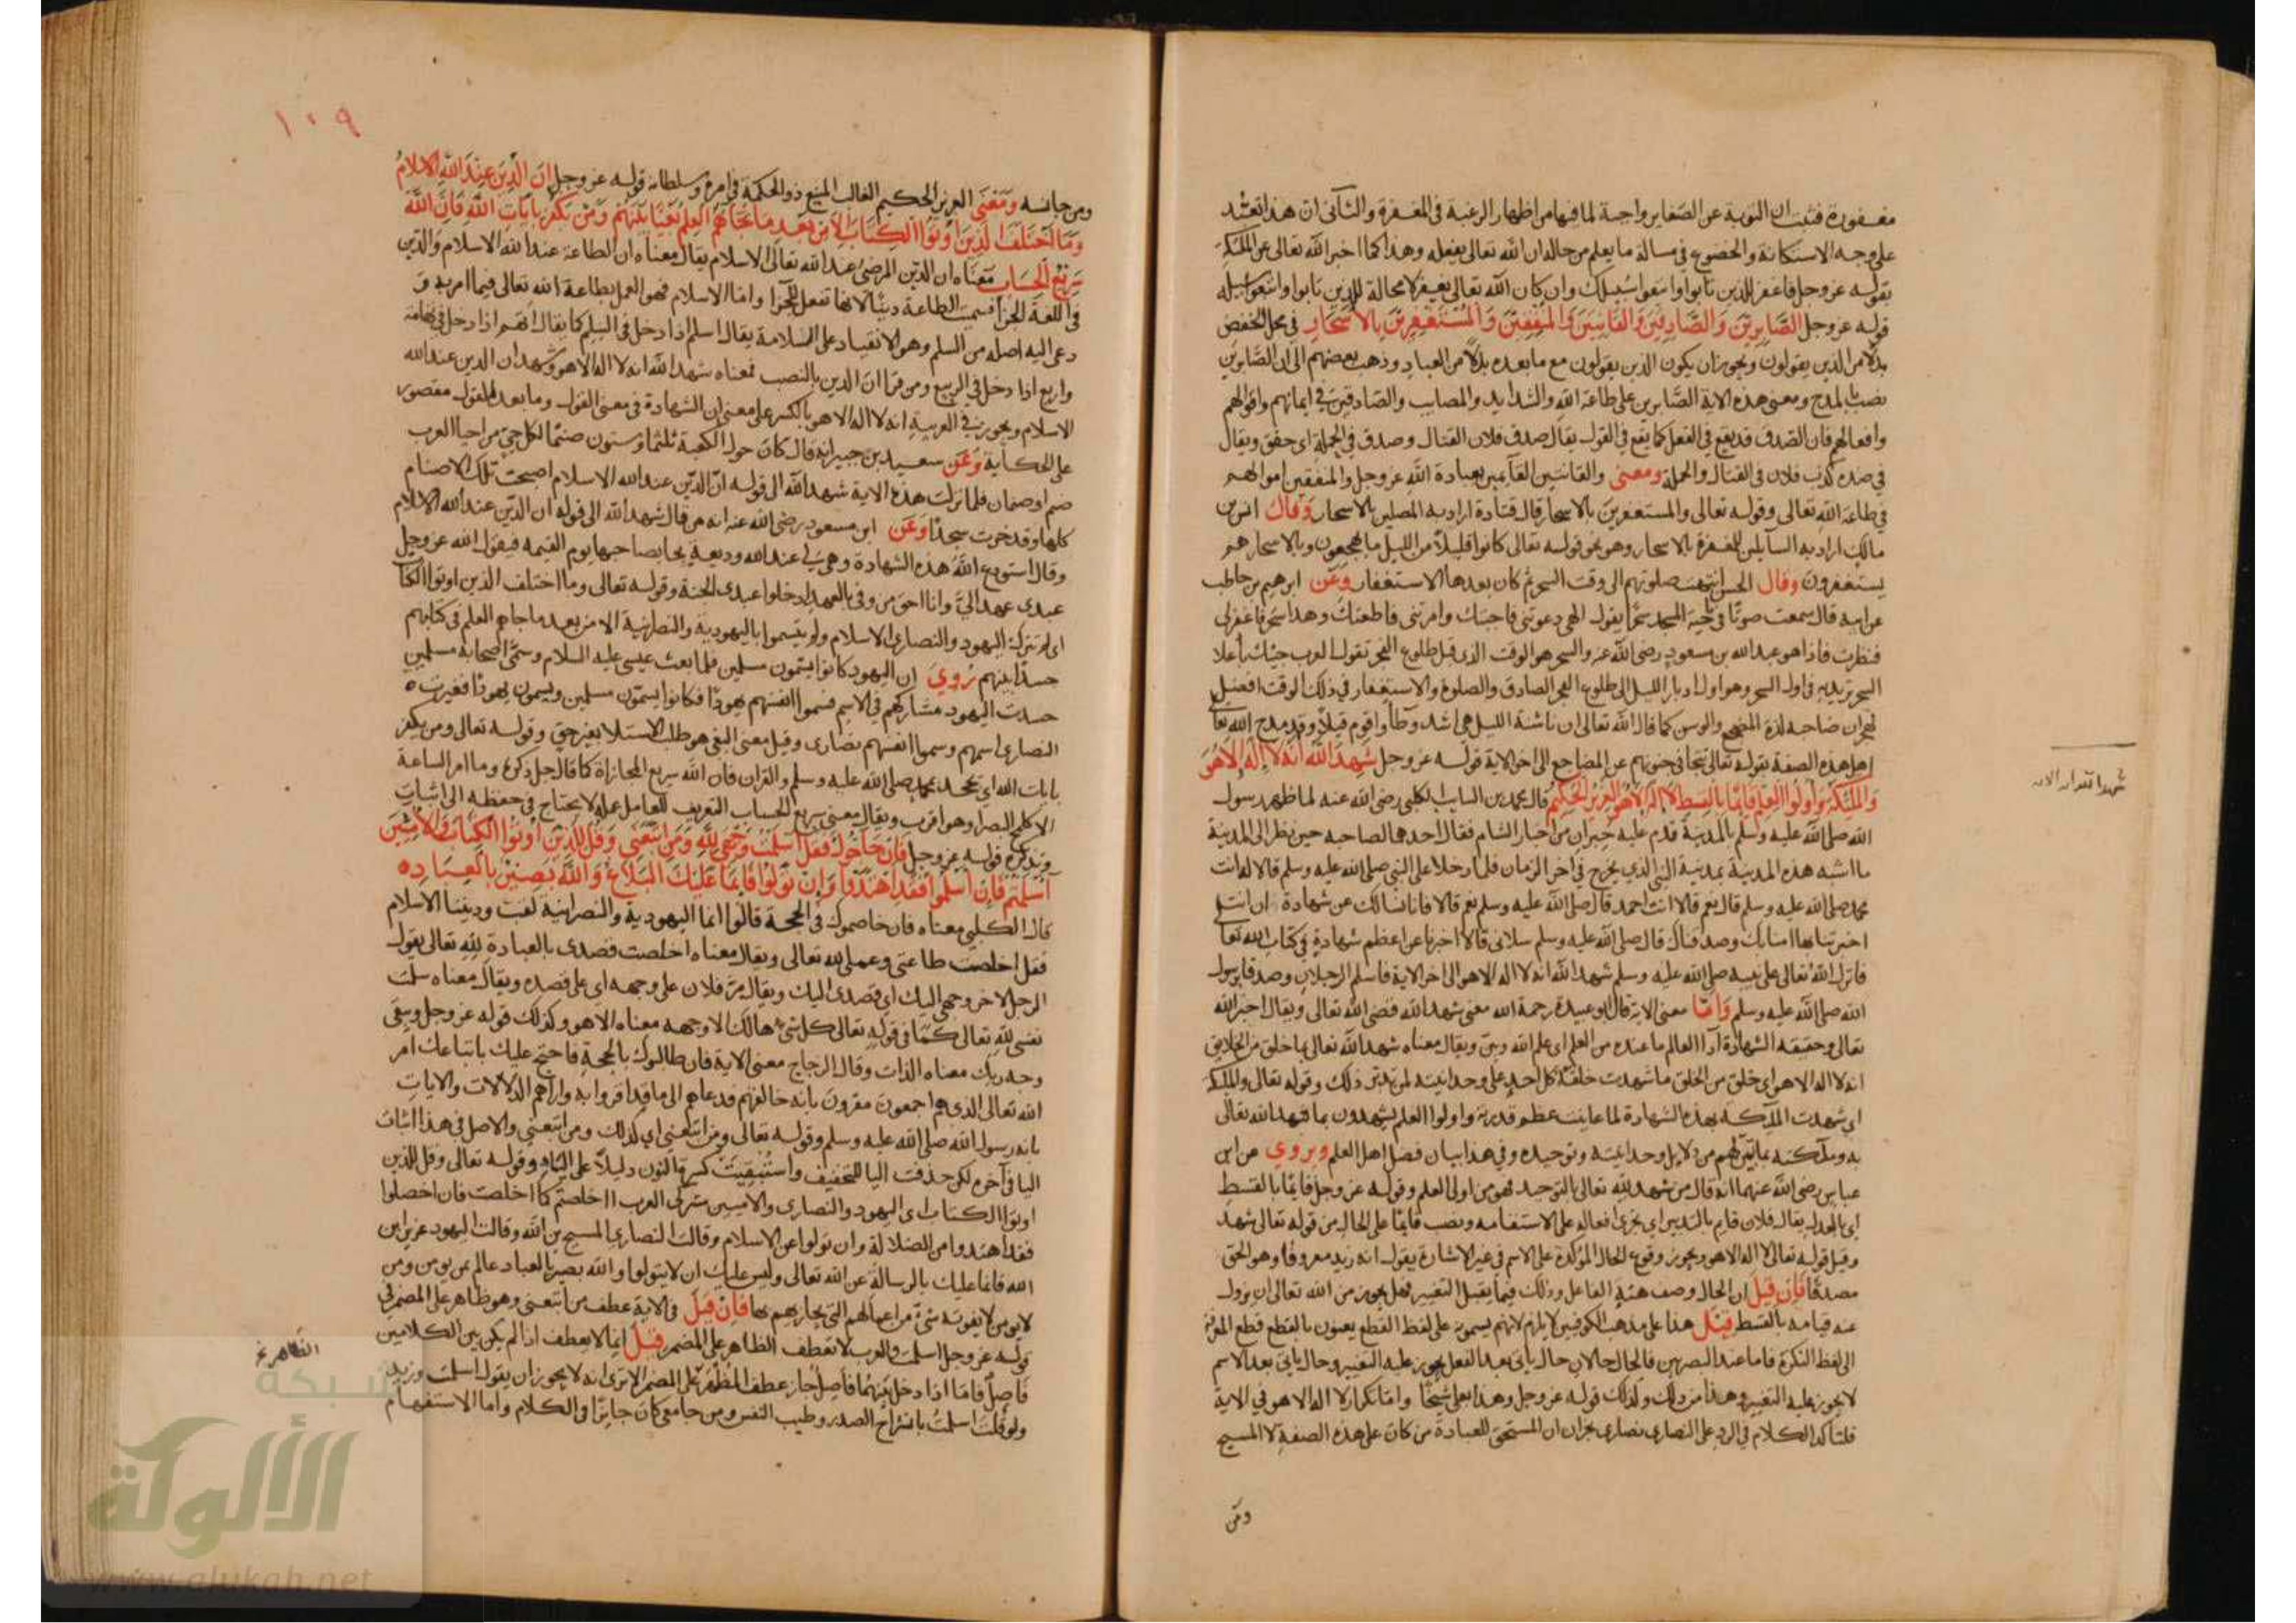 مغفورة فثبت ان التوبة عن الصغاير واجبة لما فيها من اظهار الرغبة فى المغفرة والثانى ان هذا تعبد
على وجه الاستكانة والخضوع فى مسالة ما يعلم من حاله ان الله تعالى يفعله وهذا كما اخبر الله تعالى عن الملئكة
بقوله عز وجل فاغفر للذين تابوا واتبعوا سبيلك وان كان الله تعالى يغفر لا محالة للذين تابوا واتبعوا سبيله
قوله عز وجل الصابرين والصادقين والقانتين والمنفقين والمستغفرين بالاسحار فى محل الخفض
بدلا من الذين يقولون ويجوز ان يكون الذين يقولون مع ما بعده بدلا من العباد وذهب بعضهم الى ان الصابرين
نصب بالمدح ومعنى هذه الاية الصابرين على طاعة الله والشدايد والمصايب والصادقين فى ايمانهم واقوالهم
وافعالهم فان الصدق قد يقع فى الفعل كما يقع فى القول يقال صدق فلان القتال وصدق فى الجملة اى حقق ويقال
فى ضده كذب فلان فى القتال والجملة ومعنى والقانتين القآئمين بعبادة الله عز وجل والمنفقين اموالهم
فى طاعة الله تعالى وقوله تعالى والمستغفرين بالاسحار قال قتادة اراد به المصلين بالاسحار وقال انس بن
مالك اراد به السآئلين للمغفرة بالاسحار وهو نحو قوله تعالى كانوا قليلا من الليل ما يهجعون وبالاسحار هم
يستغفرون وقال الحسن انتهت صلوتهم الى وقت السحر ثم كان بعدها الاستغفار وعن ابرهيم بن حاطب
عن ابيه قال سمعت صوتا فى ناحية المسجد سحرا يقول الهى دعوتنى فاجبتك وامرتنى فاطعتك وهذا سحر فاغفر لى
فنظرت فاذا هو عبدالله بن مسعود رضى الله عنه والسحر هو الوقت الذى قبل طلوع الفجر تقول العرب جئتك باعلا
السحر تريد به فى اول السحر وهو اول ادبار الليل الى طلوع الفجر الصادق والصلوة والاستغفار فى ذلك الوقت افضل
لهجران صاحبه لذة المضجع والوسن كما قال الله تعالى ان ناشئة الليل هى اشد وطأ واقوم قيلا وقد مدح الله تعا
اهل هذه الصفة بقوله تعالى تتجافى جنوبهم عن المضاجع الى اخر الاية قوله عز وجل شهد الله انه لا اله الا هو
والملئكة واولوا العلم قايما بالقسط لا اله الا هو العزيز الحكيم قال محمد بن السايب الكلبى رضى الله عنه لما ظهر رسول
الله صلى الله عليه وسلم بالمدينة قدم عليه حبران من احبار الشام فقال احدهما لصاحبه حين نظر الى المدينة
ما اشبه هذه المدينة بمدينة النبى الذي يخرج فى اخر الزمان فلما دخلا على النبى صلى الله عليه وسلم قالا له انت
محمد صلى الله عليه وسلم قال نعم قالا انت احمد قال صلى الله عليه وسلم نعم قالا فانا نسالك عن شهادة ان انت
اخبرتنا بها امنا بك وصدقناك قال صلى الله عليه وسلم سلانى قالا اخبرنا عن اعظم شهادة فى كتاب الله تعا
فانزل الله تعالى على نبيه صلى الله عليه وسلم شهد الله انه لا اله الا هو الى اخر الاية فاسلم الرجلان وصدقا برسول
الله صلى الله عليه وسلم واما معنى الاية قال ابو عبيدة رحمة الله معنى شهد الله قضى الله تعالى ويقال اخبر الله
تعالى وحقيقة الشهادة اداا العالم ما عنده من العلم اى علم الله وبين ويقال معناه شهد الله تعالى بما خلق من الخلايق
انه لا اله الا هو اى خلق من الخلق ما شهدت خلقة كل احد على وحدانيته لمن تدبر ذلك وقوله تعالى والملئكة
اى شهدت الملآئكة بهذه الشهادة لما عاينت عظم قدرته واولوا العلم يشهدون بما شهد الله تعالى
به وملآئكته بما تبين لهم من دلايل وحدانيته وتوحيده وفى هذا بيان فضل اهل العلم ويروي عن ابن
عباس رضى الله عنهما انه قال من شهد لله تعالى بالتوحيد فهو من اولى العلم وقوله عز وجل قايما بالقسط
اى بالعدل يقال فلان قايم بالتدبير اى يجرى افعاله على الاستقامة ونصب قايما على الحال من قوله تعالى شهد
وقيل قوله تعالى لا اله الا هو ويجوز وقوع الحال المؤكدة على الاسم فى غير الاشارة يقول انه زيد معروفا وهو الحق
مصدقا فان قيل ان الحال وصف هيئة الفاعل وذلك فيما يقبل التغيير فهل يجوز من الله تعالى ان يزول
عنه قيامه بالقسط قيل هذا على مذهب الكوفيين لا يلزم لانهم يسمونه على لفظ القطع يعنون بالقطع قطع المعرفة
الى لفظ النكرة فاما عند البصريين فالحال حالان حال ياتى بعد الفعل يجوز عليه التغيير وحال ياتى بعد الاسم
لا يجوز عليه التغيير وهذا من ذلك وكذلك قوله عز وجل وهذا بعلى شيخا واما تكرار لا اله الا هو فى الاية
فلتاكد الكلام فى الرد على النصارى نصارى نجران ان المستحق للعبادة من كان على هذه الصفة لا المسيح
ومن
شهد الله انه الاية
١٠٩
ومن جانسه ومعنى العزيز الحكيم الغالب المنيع ذو الحكمة فى امره وسلطانه قوله عز وجل ان الدين عند الله الاسلام
وما اختلف الذين اوتوا الكتاب الا من بعد ما جآءهم العلم بغيا بينهم ومن يكفر بايات الله فان الله
سريع الحساب معناه ان الدين المرضى عند الله تعالى الاسلام يقال معناه ان الطاعة عند الله الاسلام والدين
فى اللغة الجزا فسميت الطاعة دينا لانها تفعل للجزا واما الاسلام فهو العمل بطاعة الله تعالى فيما امر به و
دعى اليه اصله من السلم وهو الانقياد على السلامة يقال اسلم اذا دخل فى السلم كما يقال اتهم اذا دخل فى تهامة
واربع اذا دخل فى الربيع ومن قرا ان الدين بالنصب فمعناه شهد الله انه لا اله الا هو وشهد ان الدين عند الله
الاسلام ويجوز فى العربية انه لا اله الا هو بالكسر على معنى ان الشهادة فى معنى القول وما بعد القول مقصور
على الحكاية وعن سعيد بن جبير انه قال كان حول الكعبة ثلثمائة وستون صنما لكل حى من احيا العرب
صنم او صنمان فلما نزلت هذه الاية شهد الله الى قوله ان الدين عند الله الاسلام اصبحت تلك الاصنام
كلها وقد خرت سجدا وعن ابن مسعود رضى الله عنه انه من قال شهد الله الى قوله ان الدين عند الله الاسلام
وقال استودع الله هذه الشهادة وهى لى عند الله وديعة يجا بصاحبها يوم القيمه فيقول الله عز وجل
عبدى عهد الى وانا احق من وفى بالعهد ادخلوا عبدى الجنة وقوله تعالى وما اختلف الذين اوتوا الكتا
اى لم تترك اليهود والنصارى الاسلام ولم يتسموا باليهودية والنصرانية الا من بعد ما جاهم العلم فى كتابهم
حسدا بينهم روي ان اليهود كانوا يسمون مسلمين فلما بعث عيسى عليه السلام وسمى اصحابه مسلمين
حسدت اليهود مشاركتهم فى الاسم فسموا انفسهم يهودا فكانوا يسمون مسلمين ويسمون يهودا فغيرت
النصارى اسمهم وسموا انفسهم نصارى وقيل معنى البغى هو طلب الاستعلا بغير حق وقوله تعالى ومن يكفر
بايات الله اى يجحد بمحمد صلى الله عليه وسلم والقران فان الله سريع المجازاة كما قال جل ذكره وما امر الساعة
الا كلمح البصر او هو اقرب ويقال معنى سريع الحساب التعريف للعامل عمله لا يحتاج فى حفظه الى اثبات
وتذكره قوله عز وجل فان حآجوك فقل اسلمت وجهى لله ومن اتبعنى وقل للذين اوتوا الكتاب والاميين
ااسلمتم فان اسلموا فقد اهتدوا وان تولوا فانما عليك البلاغ والله بصير بالعباد
قال الكلبى معناه فان خاصموك فى الحجة قالوا انما اليهودية والنصرانية لغت وديننا الاسلام
فقل اخلصت طاعتى وعملى لله تعالى ويقال معناه اخلصت قصدى بالعبادة لله تعالى يقول
الرجل لاخر وجهى اليك اى قصدى اليك ويقال مر فلان على وجهه اى على قصده ويقال معناه سلمت
نفسى لله تعالى كما فى قوله تعالى كل شئ هالك الا وجهه معناه الا هو وكذلك قوله عز وجل ويبقى
وجه ربك معناه الذات وقال الزجاج معنى الاية فان طالبوك بالحجة فاحتج عليك باتباعك امر
الله تعالى الذى هم اجمعون مقرون بانه خالقهم فدعاهم الى ما قد اقروا به واراهم الدلالات والايات
بانه رسول الله صلى الله عليه وسلم وقوله تعالى ومن اتبعنى اى كذلك ومن اتبعنى والاصل فى هذا اثبات
اليا فى آخره لكن حذفت اليا للتخفيف واستبقيت كسرة النون دليلا على اليا وقوله تعالى وقل للذين
اوتوا الكتاب اى اليهود والنصارى والاميين مشركى العرب ااخلصتم كما اخلصت فان اخلصوا
فقد اهتدوا من الضلالة وان تولوا عن الاسلام وقالت النصارى المسيح بن الله وقالت اليهود عزير ابن
الله فانما عليك بالرسالة عن الله تعالى وليس عليك ان لا يتولوا والله بصير بالعباد عالم بمن يومن ومن
لا يومن لا يفوته شئ من اعمالهم التى يجازيهم بها فان قيل فى الاية عطف من اتبعنى وهو ظاهر على المضمر فى
قوله عز وجل اسلمت والعرب لا تعطف الظاهر على المضمر قيل انما لا يعطف اذا لم يكن بين الكلامين
فاصل فاما اذا دخل بينهما فاصل جاز عطف المظهر على المضمر الا ترى انه لا يجوز ان يقول اسلمت وزيد
ولو قلت اسلمت بانشراح الصدر وطيب النفس ومن جا معى كان جايزا فى الكلام واما الاستفهام
الظاهر
شبكة
الألوكة
www.alukah.net